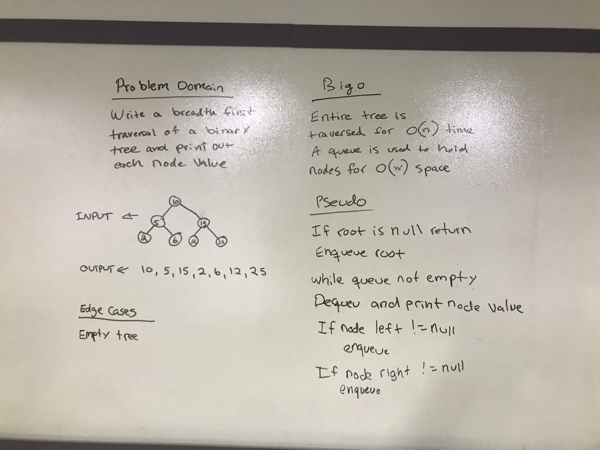 Problem Domain
Write a breadth first
traversal of a binary
tree and print out
each node value
INPUT ←
10
5 15
2 6 12 25
OUTPUT ← 10, 5, 15, 2, 6, 12, 25
Edge Cases
Empty tree
Big O
Entire tree is
traversed for O(n) time
A queue is used to hold
nodes for O(w) space
Pseudo
If root is null return
Enqueue root
while queue not empty
Dequeu and print node value
If node left != null
enqueue
If node right != null
enqueue